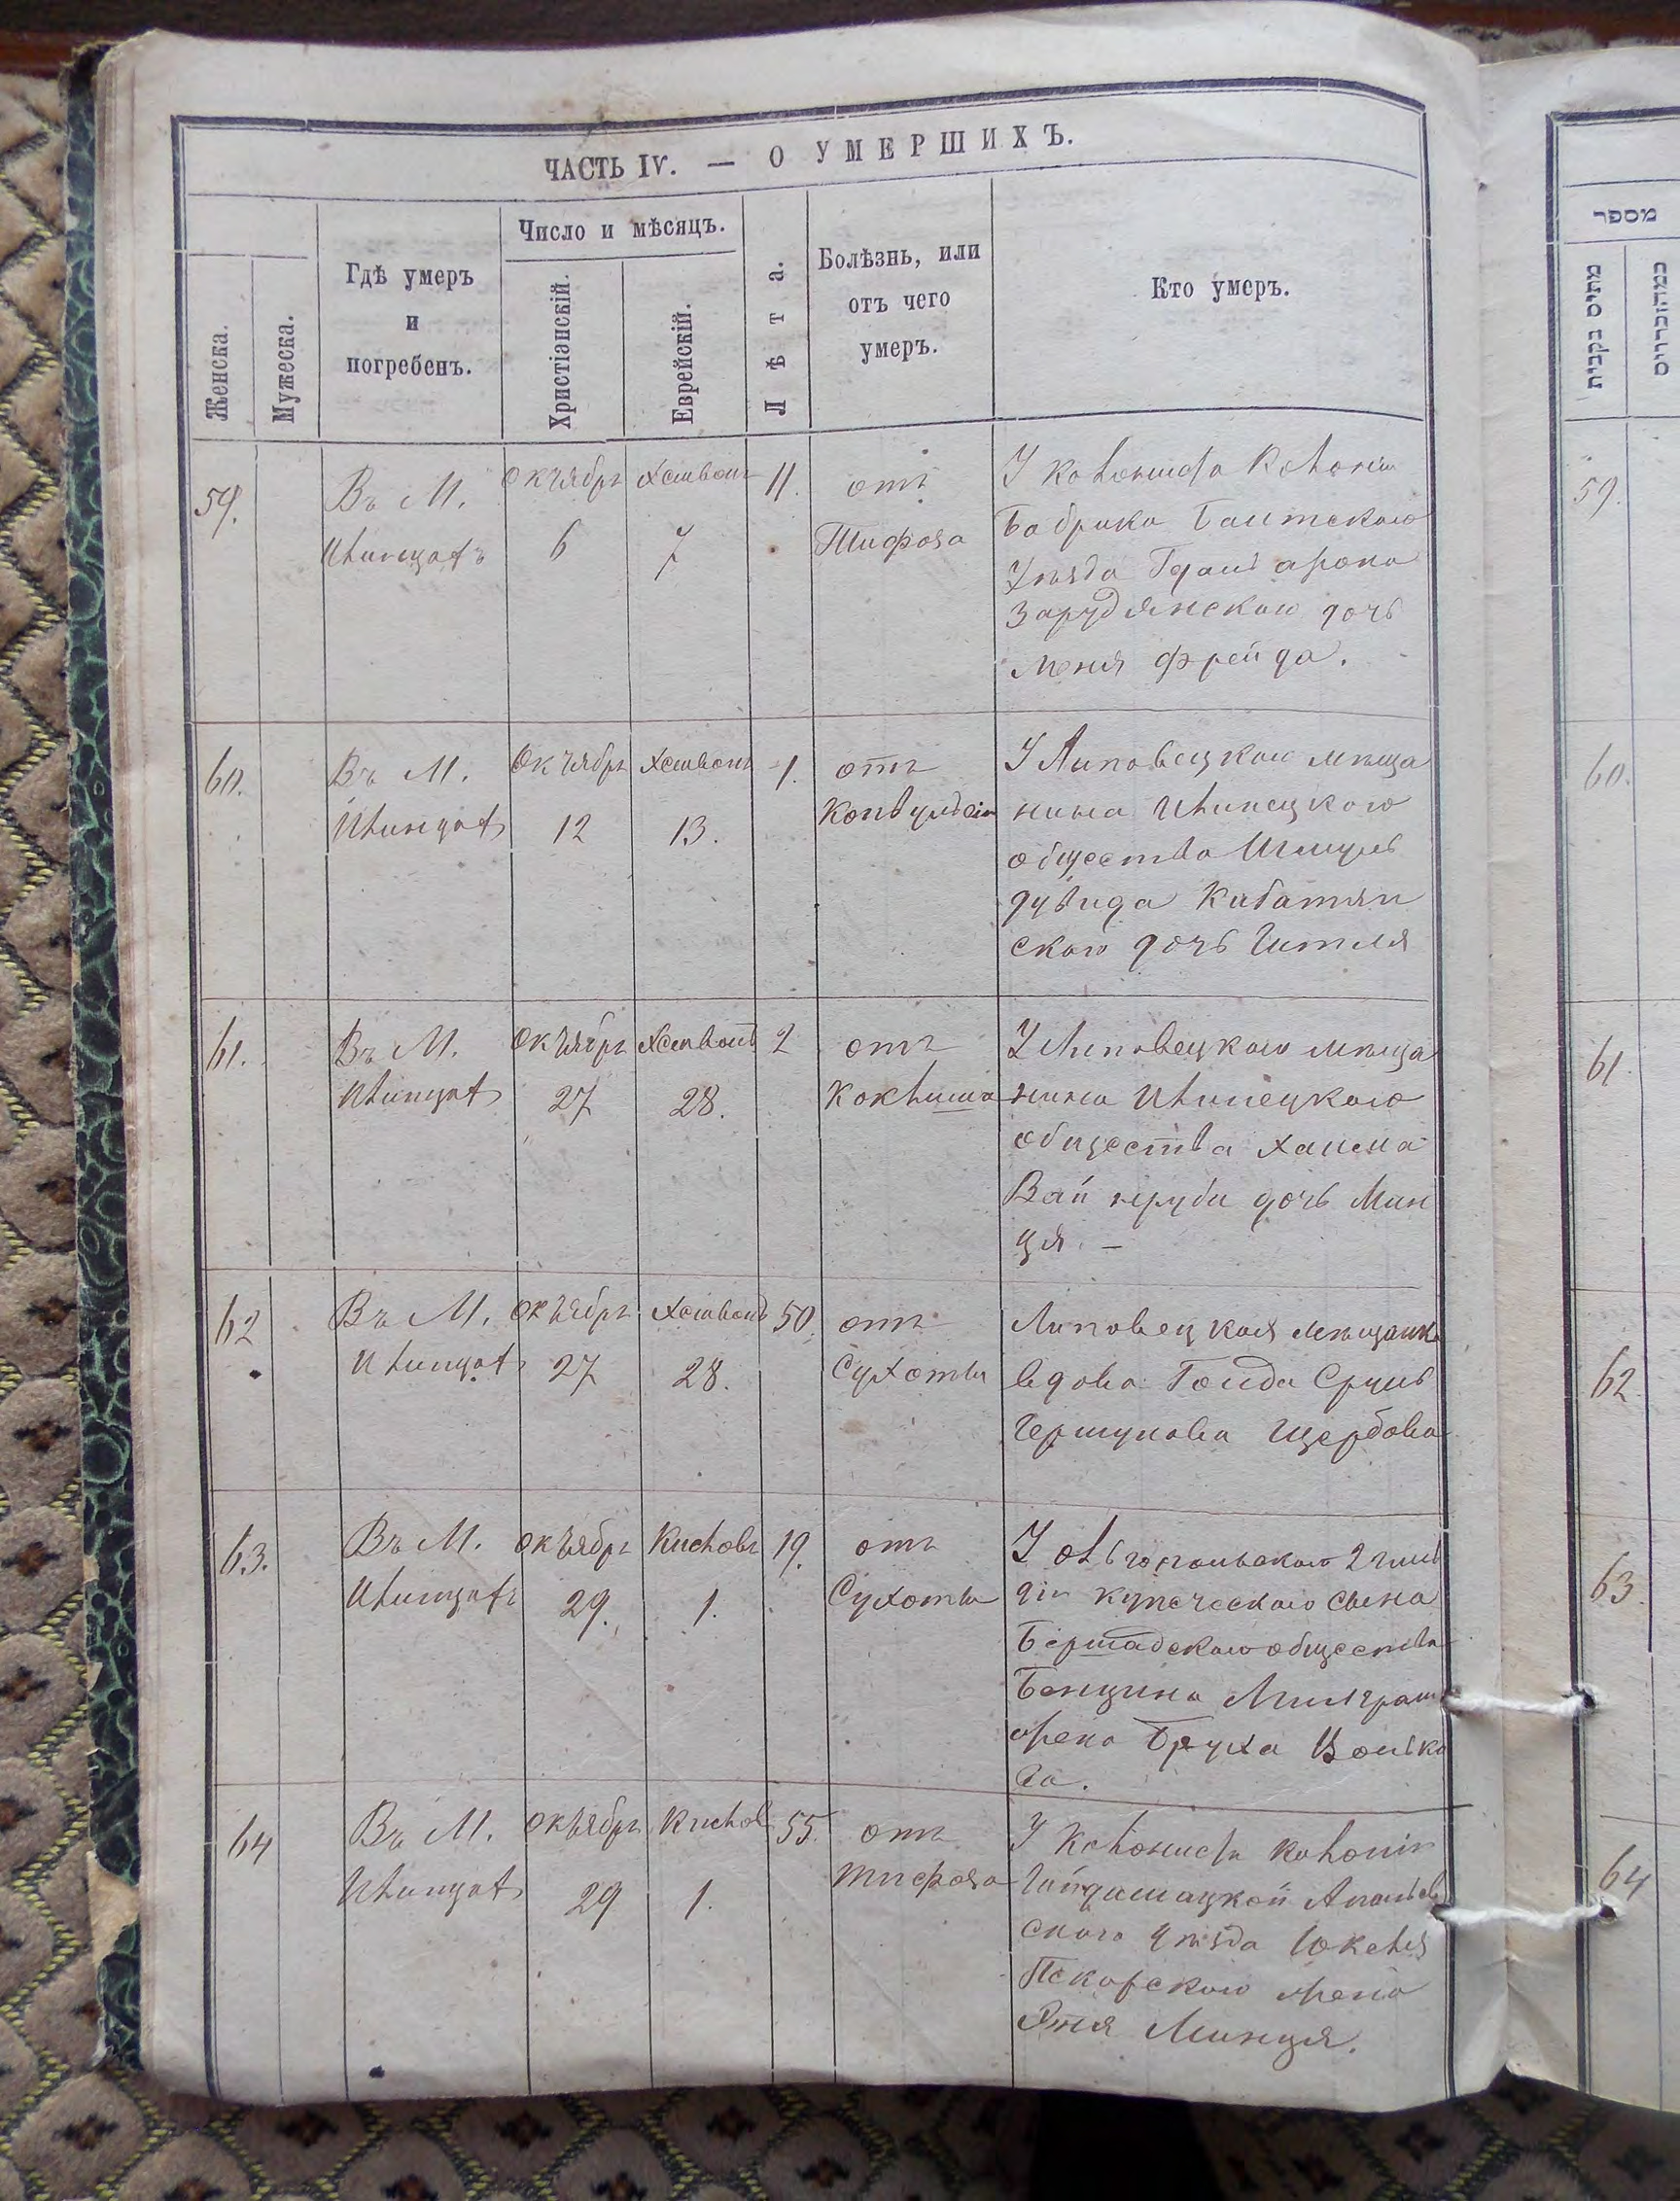 ЧАСТЬ IV. — О УМЕРШИХЪ.
Женска.
Мужеска.
Гдѣ умеръ
и
погребенъ.
Число и мѣсяцъ.
Христіанскій.
Еврейскій.
Лѣта.
Болѣзнь, или
отъ чего
умеръ.
Кто умеръ.
59.
Въ М.
Илинцахъ
Октябрь
6
Хешвонъ
7
11.
отъ
Тифоза
У Колониста Колоніи
Уѣзда
Зарудянского дочь
Меня Фрейда.
60.
Въ М.
Илинцахъ
Октябрь
12
Хешвонъ
13.
1.
отъ
Конвульсіи
У Липовецкого мѣща
нина Илинецкого
общества Шмуль
Дувида Кибатян
ского дочь Гитля
61.
Въ М.
Илинцахъ
Октябрь
27
Хешвонъ
28.
2
отъ
Коклюша
У Липовецкого мѣща
нина Илинецкого
общества Хаима
Вайнруби дочь Мин
ця. —
62
Въ М.
Илинцахъ
Октябрь
27
Хешвонъ
28.
50
отъ
Сухоты
Липовецкая мѣщанка
вдова Голда Сруль
Гершунова Щербова
63.
Въ М.
Илинцахъ
Октябрь
29.
Кисловъ
1.
19.
отъ
Сухоты
У Ольгопольского 2 гиль
діи купеческого сына
Бершадского общества
Бенциона Милграма
жена Бруха Волько
ва.
64
Въ М.
Илинцахъ
Октябрь
29
Кислов
1.
55.
отъ
тифоза
У Колониста Колоніи
Ананьев
ского уѣзда
Пекарского жена
Этя Минця.
מספר
59.
60.
61.
62
63
64